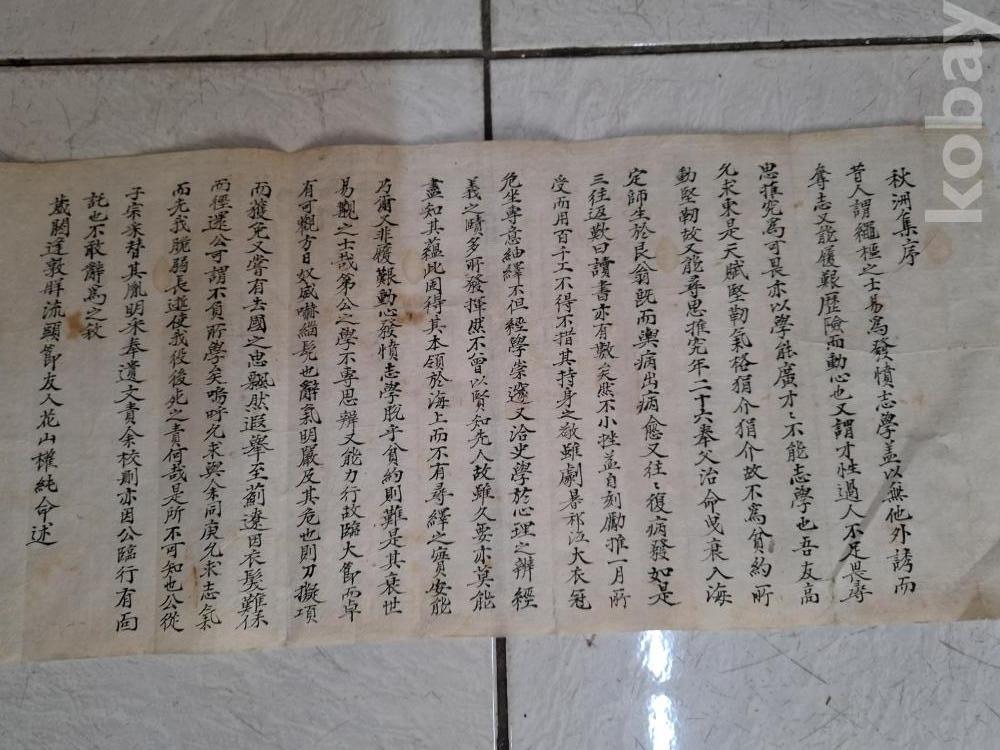 秋洲集序
昔人謂繩樞之士易爲發憤志學蓋以無他外誘而
奪志又能履艱歷險而動心也又謂才性過人不足畏尋
思推究爲可畏亦以學能廣才才不能志學也吾友高
允求東是天賦堅勒氣格狷介狷介故不爲貧約所
動堅勒故又能尋思推究年二十六奉父治命曳衰入海
定師生於艮翁旣而輿病出病愈又往往復病發如是
三往返歎曰讀書亦有數矣然不小挫益自刻勵推一月所
受而用百千工不得不措其持身之敬雖劇暑祁沍大衣冠
危坐專意紬繹不但經學崇邃又治史學於心理之辨經
義之賾多所發揮然不曾以賢知先人故雖久要亦莫能
盡知其蘊此固得其本領於海上而不有尋繹之實安能
乃爾又非履艱動心發憤志學脫乎貧約則難是其衰世
易觀之士哉第公之學不專思辨又能力行故臨大節而卓
有可觀方日奴威嚇緇髡也辭氣明嚴及其危也則刀擬項
而獲免又嘗有去國之忠飄然遐擧至薊遼因衣髮難保
而徑還公可謂不負所學矣嗚呼允求與余同庚允求志氣
而先我脆弱長逝使我後後死之責何哉是所不可知也公從
子宋寀替其胤明宋奉遺文責余校刪亦因公臨行有面
託也不敢辭爲之敍
歲閼逢敦牂流頭節友人花山權純命述
kobay